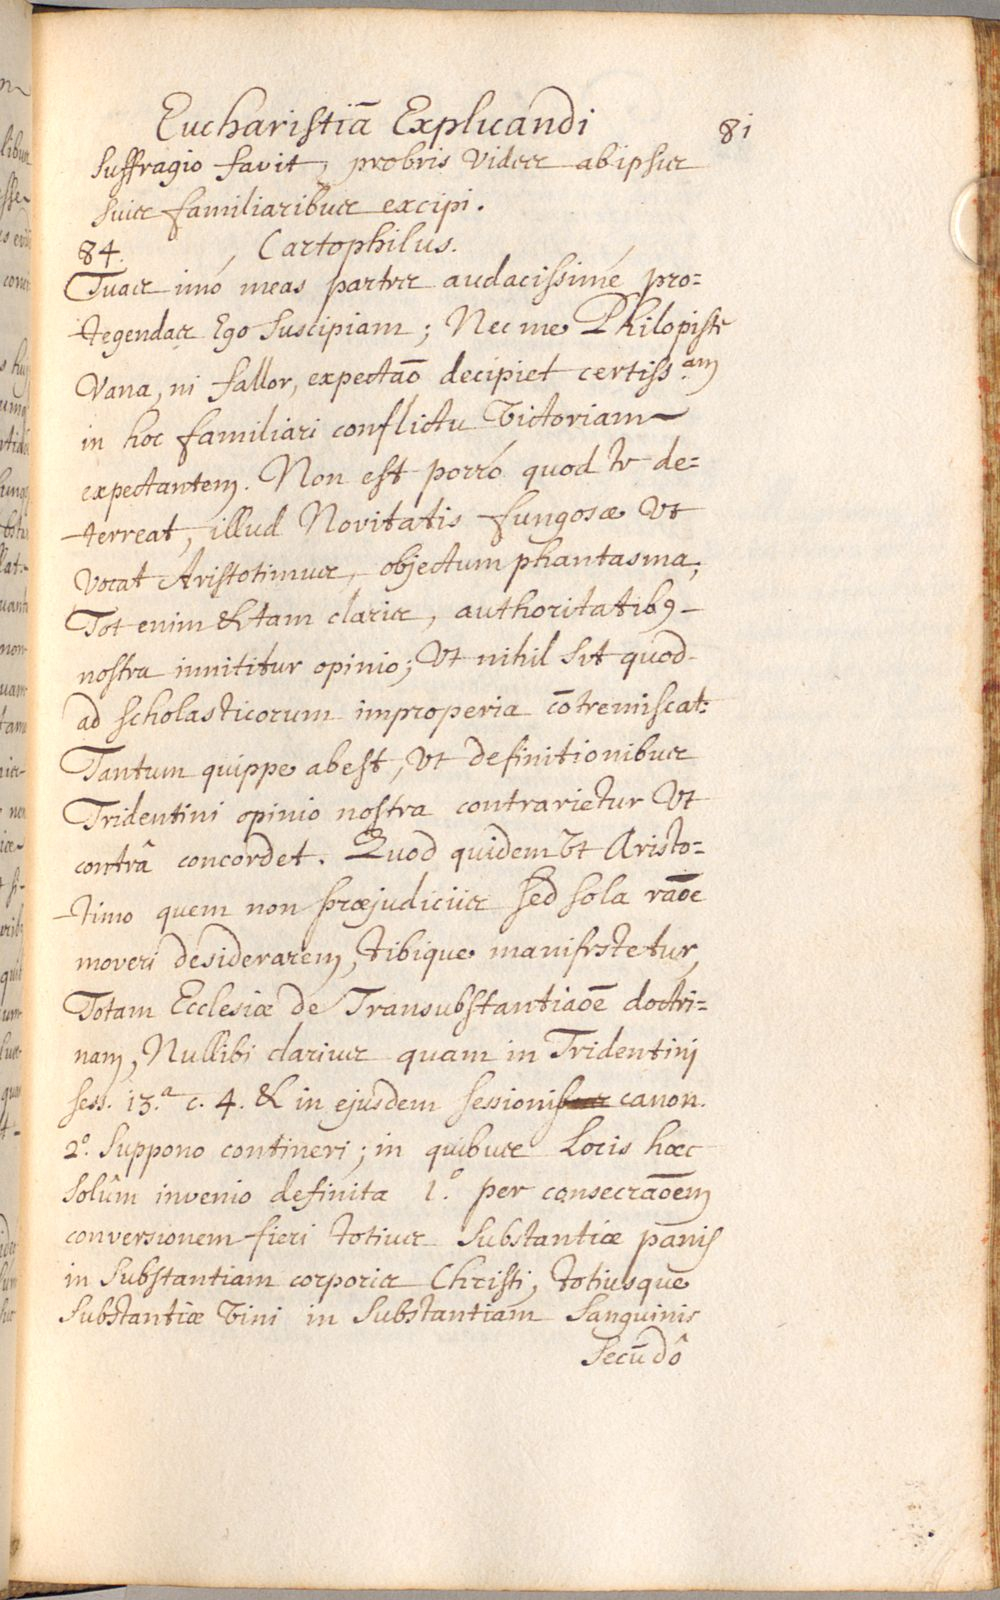 Eucharistiā Explicandi
81
suffragio favit, probris Vides ab ipsis
suis familiaribus excipi.
84. Cartophilus.
Tuas imó meas partes audacissimé pro=
tegendas Ego suscipiam; Nec me Philopiste
Vana, ni fallor, expectaō decipiet certiss.am
in hoc familiari conflictu Victoriam
expectantem. Non est porró quod te de=
terreat, illud Novitatis fungosæ Vt
vocat Aristotimus, objectum phantasma;
Tot enim & tam claris, authoritatibꝰ
nostra innititur opinio; Vt nihil sit quod
ad scholasticorum improperia cōtremiscat:
Tantum quippe abest, Vt definitionibus
Tridentini opinio nostra contrarietur Vt
contrâ concordet. Quod quidem Vt Aristo=
timo quem non præjudiciis sed sola raōe
moveri desiderarem, tibique manifestetur,
Totam Ecclesiæ de Transubstantiaōe doctri=
nam, Nullibi clarius quam in Tridentini
sess. 13.a c. 4. & in ejusdem sessionis canon.
2º. Suppono contineri; in quibus Locis hæc
solûm invenio definita 1.º per consecraōem
conversionem fieri totius Substantiæ panis
in Substantiam corporis Christi, totiusque
Substantiæ Vini in Substantiam Sanguinis
Secūdô